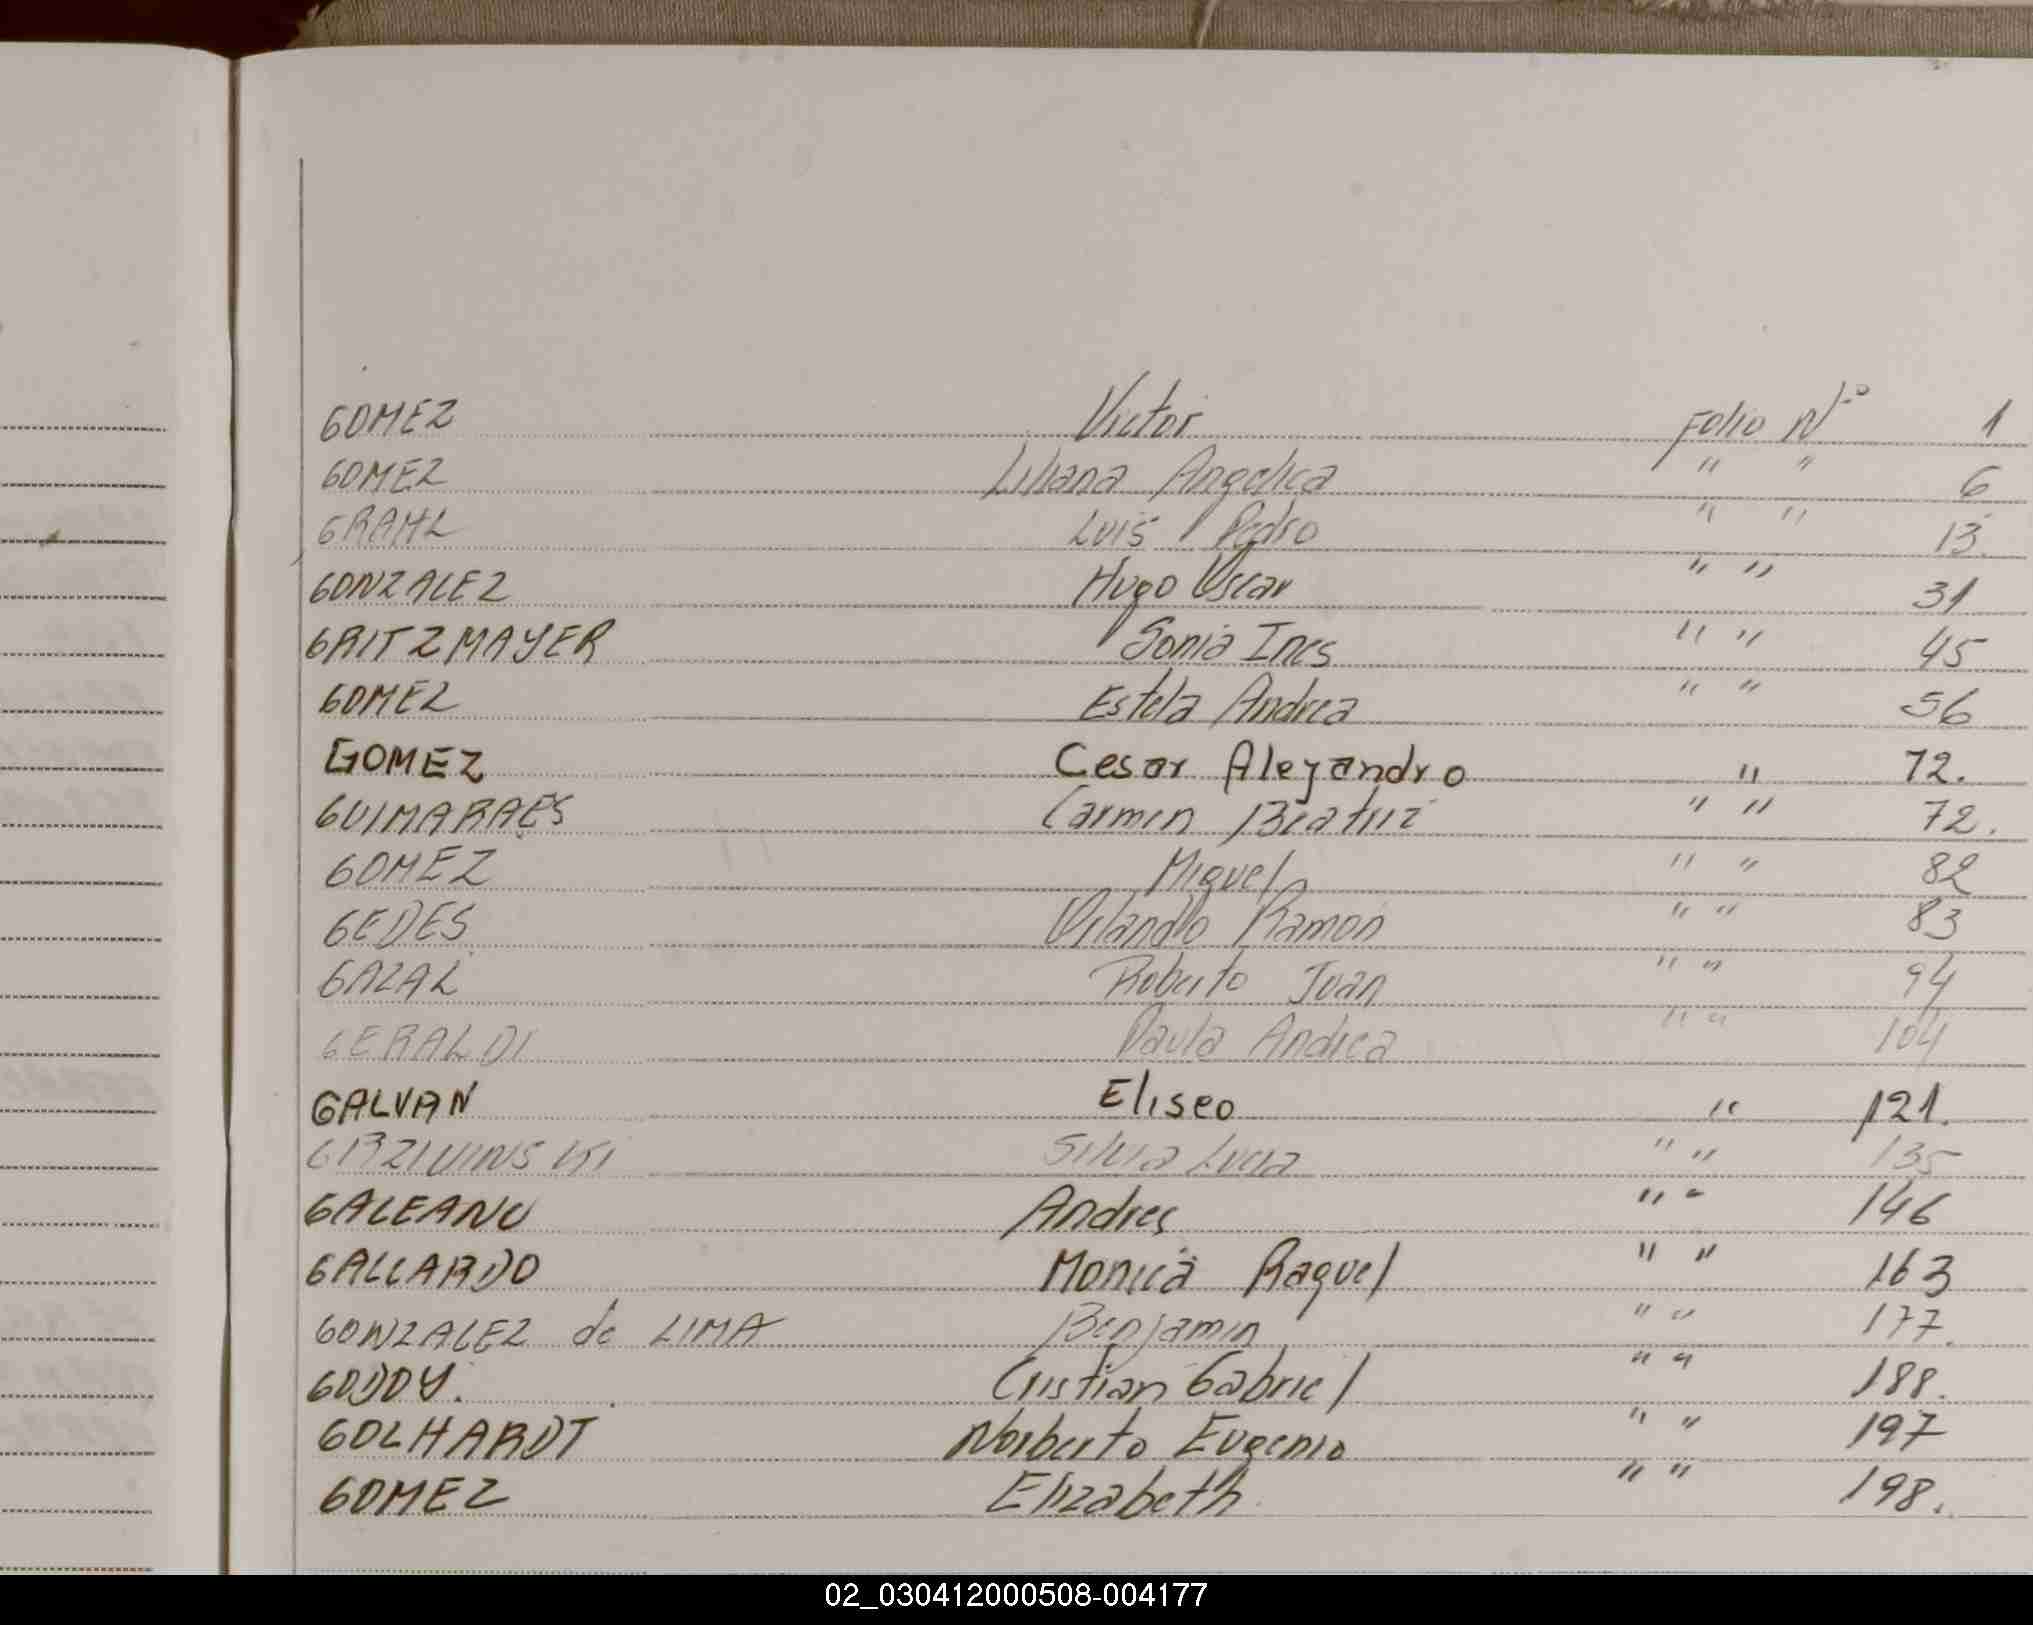 GOMEZ Victor Folio Nº 1
GOMEZ Liliana Angelica " " 6
GRAML Luis Pedro " " 13.
GONZALEZ Hugo Oscar " " 31
GRITZMAYER Sonia Ines " " 45
GOMEZ Estela Andrea " " 56
GOMEZ Cesar Aleyandro " 72.
GUIMARAES Carmen Beatriz " " 72.
GOMEZ Miguel " " 82
GEDES Orlando Ramon " " 83
GAZAL Roberto Juan " " 94
GERALDI Paula Andrea " " 104
GALVAN Eliseo " 121.
Silvia Lucia " " 135
GALEANO Andres " " 146
GALLARDO Monica Raquel " " 163
GONZALEZ de LIMA Benjamin " " 177.
GODOY. Cristian Gabriel " " 188.
GOLHARDT Norberto Eugenio " " 197
GOMEZ Elizabeth " " 198.
02_030412000508-004177